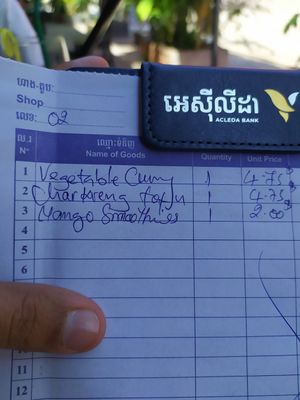 ហាង-តូប:
Shop
លេខ: 02
អេស៊ីលីដា
ACLEDA BANK
ល.រ
N°
ឈ្មោះទំនិញ
Name of Goods
Quantity
Unit Price
1 Vegetable Curry 1 4.75$
2 tofu 1 4.75$
3 Mango Smoothies 1 2.00$
4
5
6
7
8
9
10
11
12